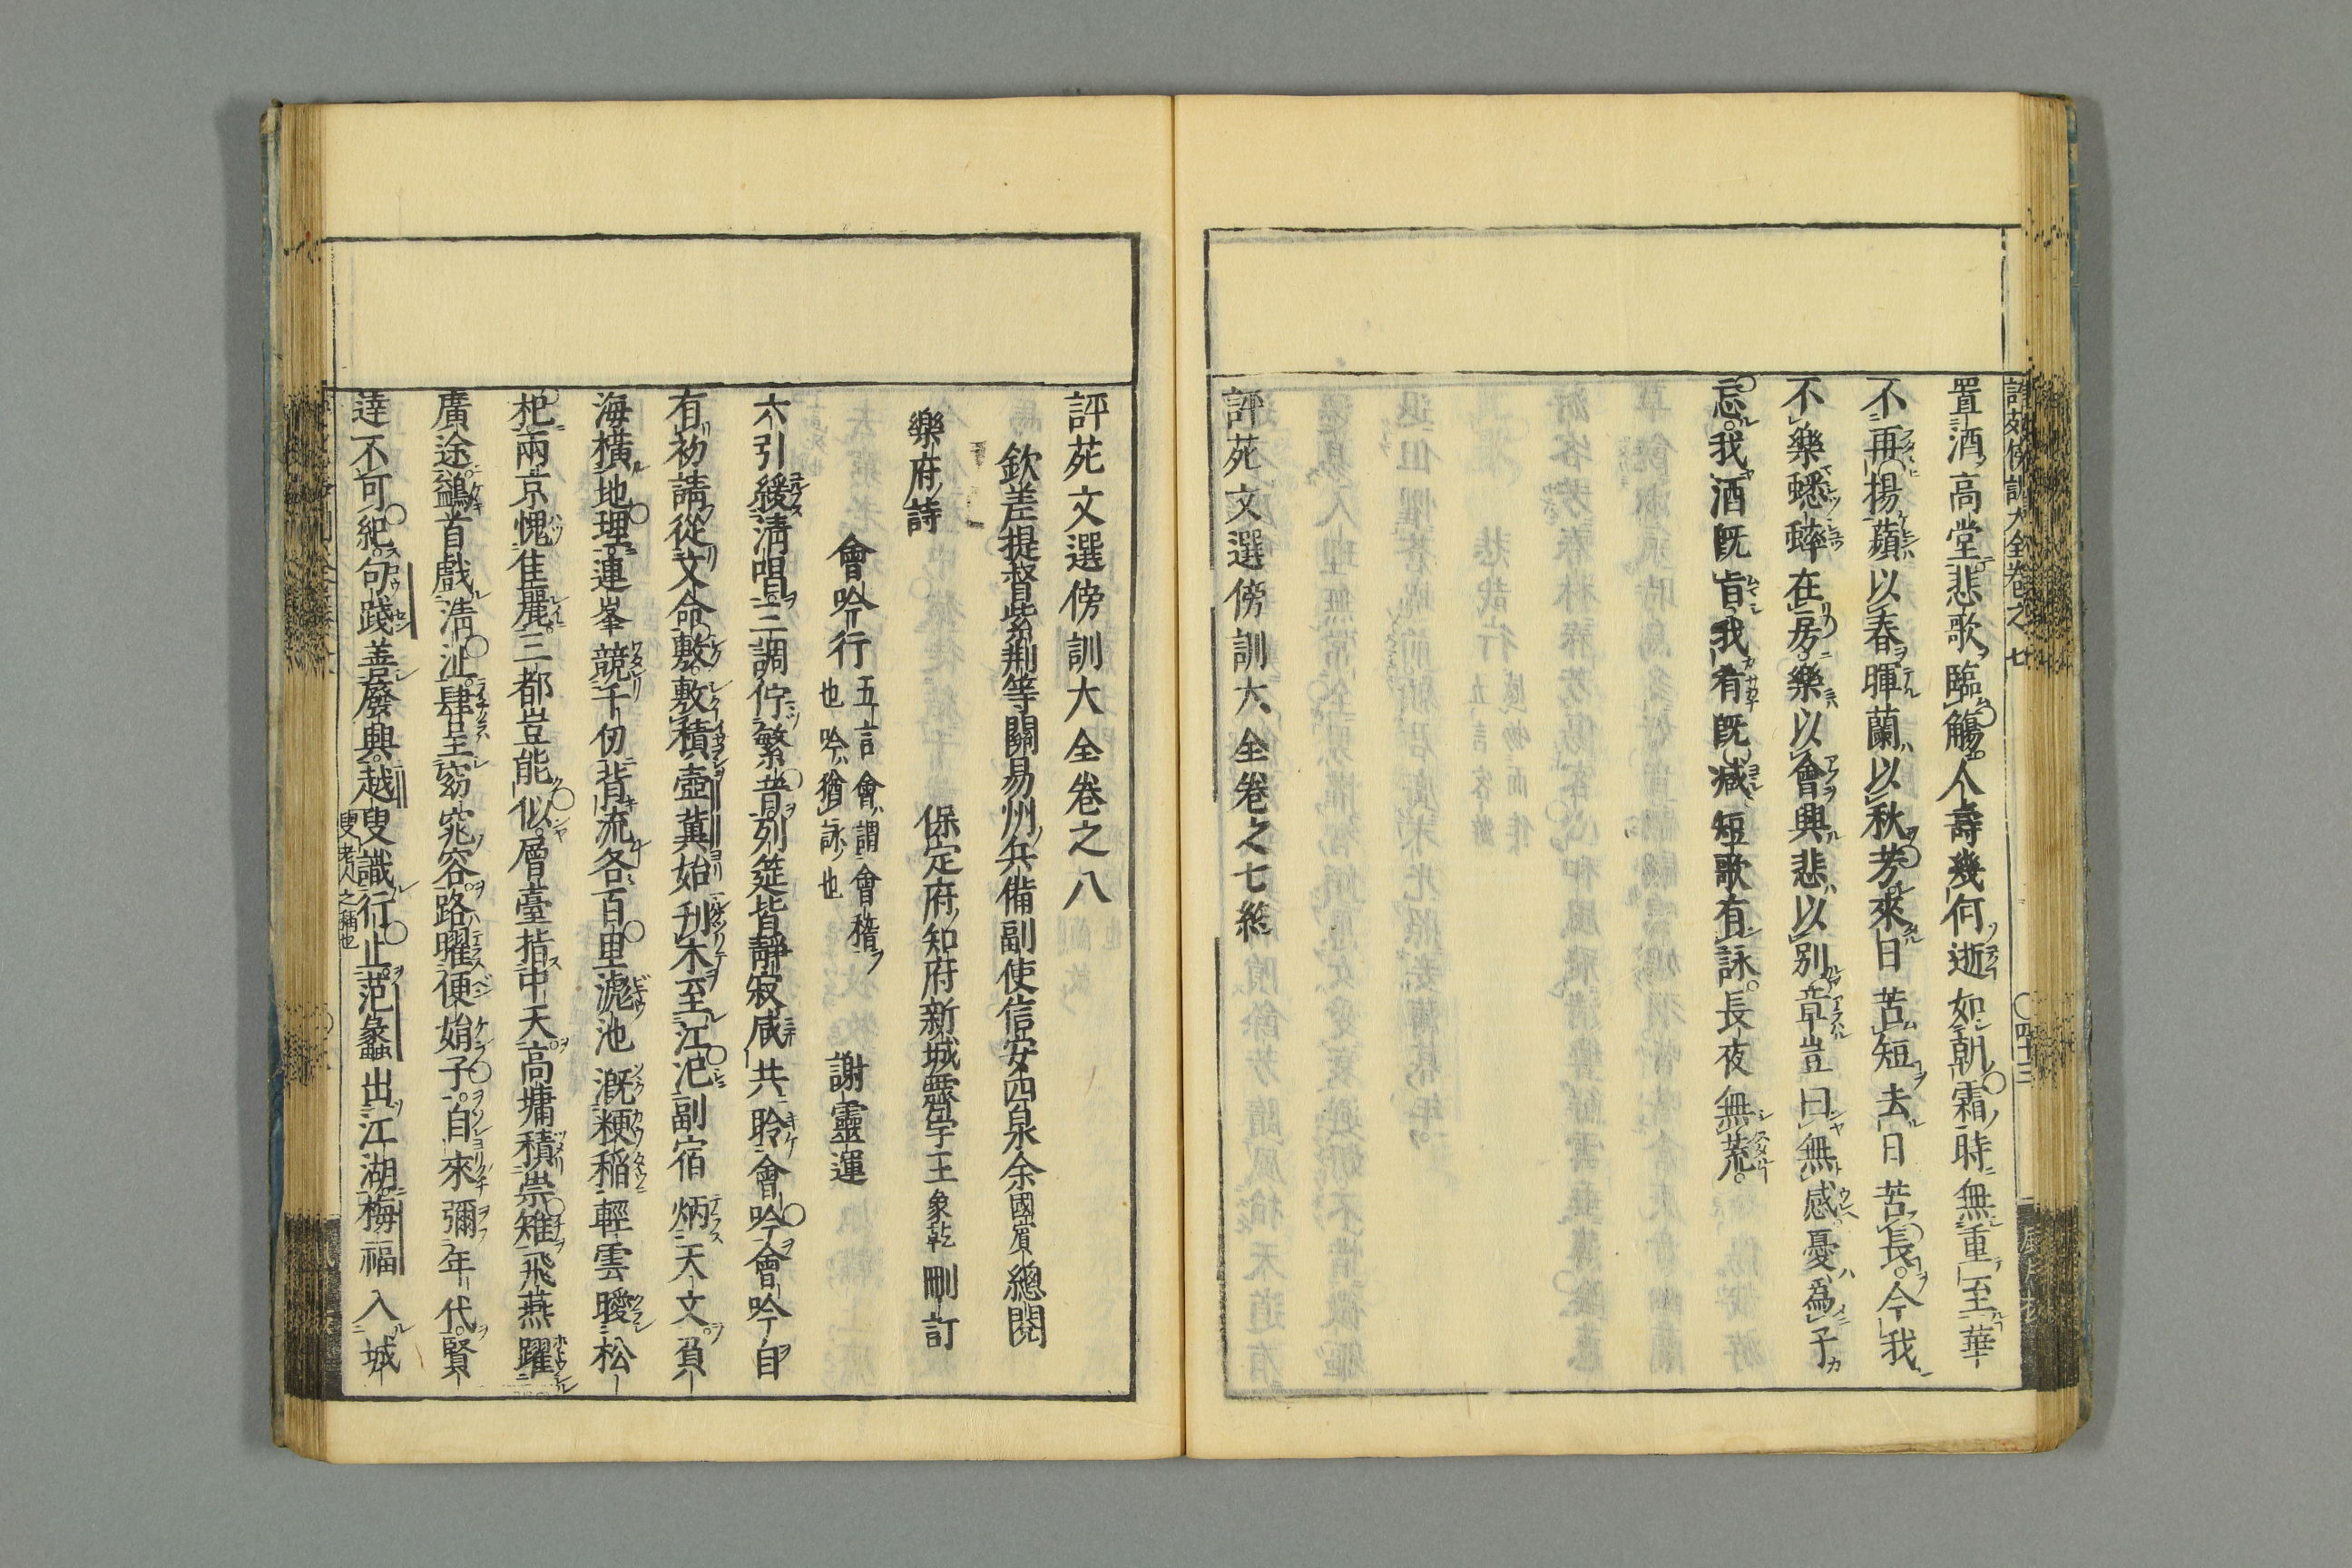 置酒高堂悲歌臨觴人壽幾何逝如朝霜時無重至華
不再揚蘋以春暉蘭以秋芳來日苦短去日苦長今我
不樂蟋蟀在房樂以會興悲以別章豈曰無感憂爲子
忘我酒既旨我肴既減短歌有詠長夜無荒
評苑文選傍訓大全卷之七終
評苑文選傍訓大全卷之八
欽差提督紫荆等關易州兵備副使信安西泉余國賓總閱
保定府知府新城霽宇王象乾刪訂
樂府詩
會吟行 五言會謂會稽
也吟猶詠也
謝靈運
六引緩淸唱三調佇繁音列筵皆靜寂咸共聆會吟會吟自
有初請從文命敷敷積壺冀始刋木至江汜副宿炳天文負
海橫地理連峯競千仞背流各百里滮池漑粳稲輕雲曖松
杞兩京愧佳麗三都豈能似層臺指中天高墉積崇雉飛燕躍
廣途鷁首戲淸沚肆呈窈窕容路曜便娟子自來彌年代賢
達不可紀句踐善廢興越叟識行止范蠡出江湖梅福入城
叟老人之稱也